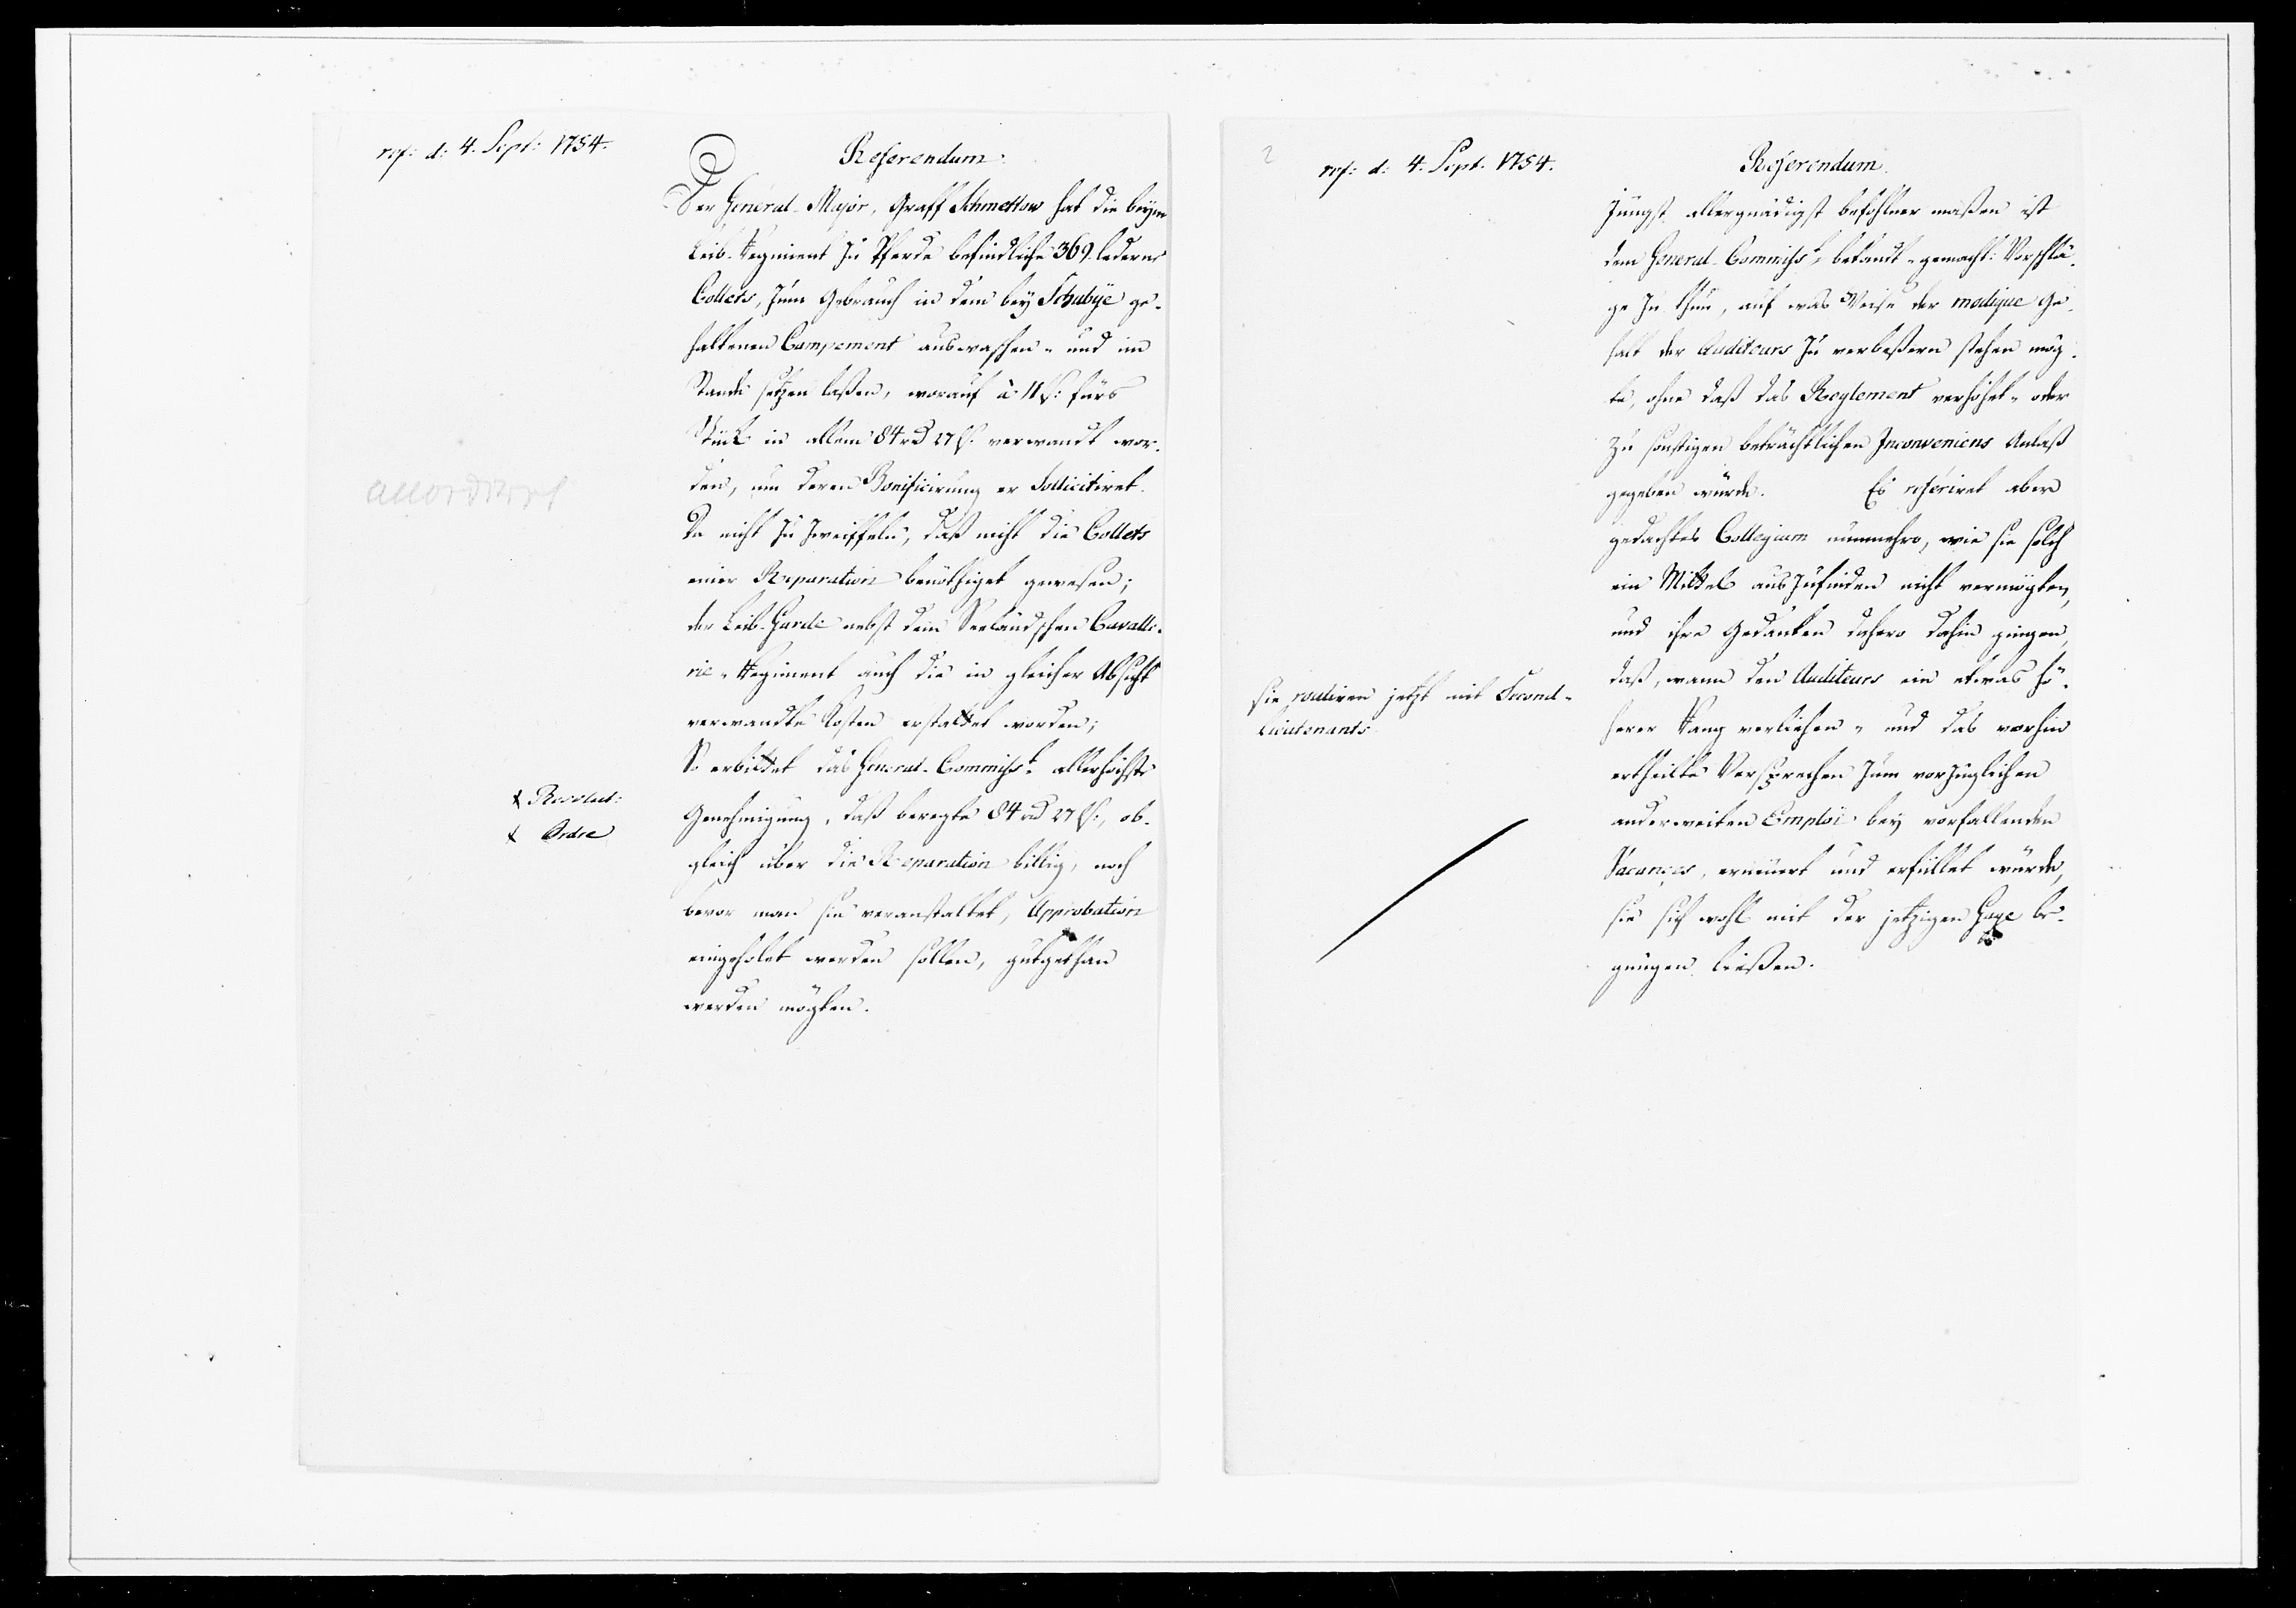 ref: d: 4. Sept: 1754.
Referendum.
Der General-Major, Graff Schmettow hat die beym
Leib-Regiment zu Pferde befindliche 369. lederne
Collets, zum Gebrauch in dem bey Schubÿe ge-
haltenen Campement auswaschen- und im
Stande setzen laßen, worauf à 11 ß: fürs
Stück in allem 84 rd 27 ß. verwandt wor-
den, um deren Bonificirung er sollicitiret.
Da nicht zu zweiffeln, daß nicht die Collets
einer Reparation benöthiget gewesen;
der Leib-Garde nebst dem Seeländschen Cavalle-
rie-Regiment auch die in gleicher Absicht
verwandte Kosten erstattet worden;
So erbittet das General-Commißt. allerhöchste
Genehmigung, daß beregte 84 rd 27 ß:, ob-
gleich über die Reparation billig, noch
bevor man sie veranstaltet, Approbation
eingeholet werden sollen, gutgethan
werden mögten.
accordiret
x Resolut:
x Ordre
2
ref: d: 4. Sept. 1754.
Referendum.
Jüngst allergnädigst befohlner maßen ist
dem General-Commißt. bekandt-gemacht: Vorschlä-
ge zu thun, auf was Weise der modique Ge-
halt der Auditeurs zu verbeßern stehen mög-
te, ohne daß das Reglement verhöhet- oder
zu sonstigen beträchtlichen Inconveniens Anlaß
gegeben würde. Es referiret aber
gedachtes Collegium nunmehro, wie sie solch
ein Mittel auszufinden nicht vermögten,
und ihre Gedanken dahero dahin gingen,
daß, wann den Auditeurs ein etwas hö-
herer Rang verliehen- und das vorhin
ertheilte Versprechen zum vorzüglichen
anderweiten Emploi bey vorfallenden
Vacançes, erneuert und erfüllet würde,
sie sich wohl mit der jetzigen Gage be-
gnügen ließen.
sie rouliren jetzt mit Second-
Lieutenants.